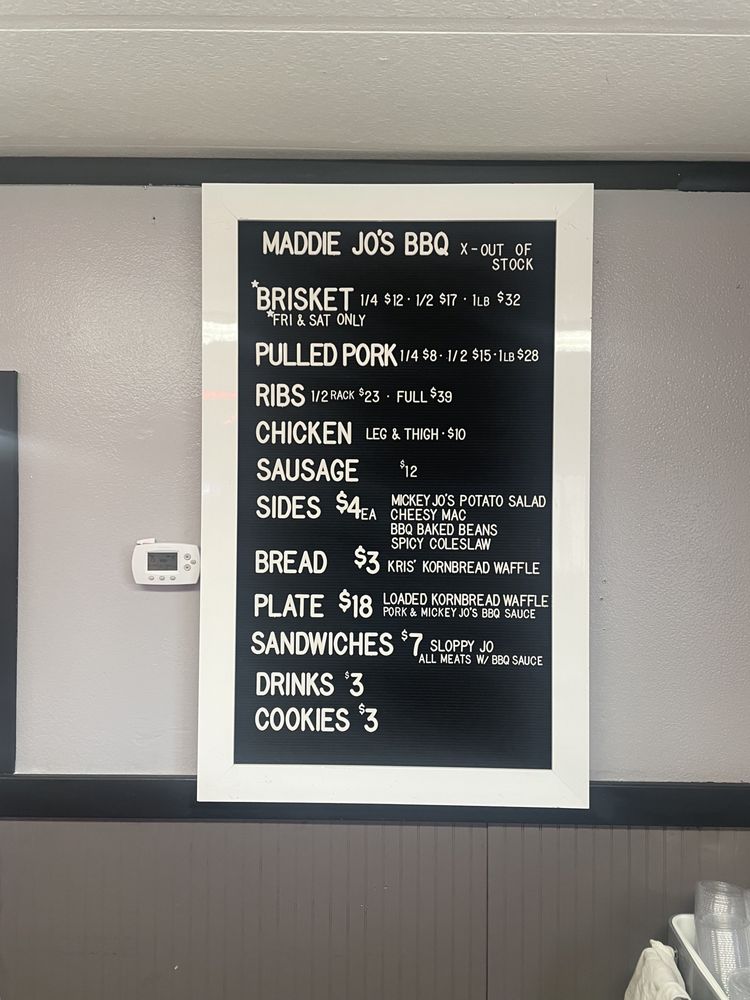 MADDIE JO'S BBQ X-OUT OF
STOCK
*BRISKET 1/4 $12 · 1/2 $17 · 1LB $32
*FRI & SAT ONLY
PULLED PORK 1/4 $8 · 1/2 $15 · 1LB $28
RIBS 1/2 RACK $23 · FULL $39
CHICKEN LEG & THIGH · $10
SAUSAGE $12
SIDES $4EA MICKEY JO'S POTATO SALAD
CHEESY MAC
BBQ BAKED BEANS
SPICY COLESLAW
BREAD $3 KRIS' KORNBREAD WAFFLE
PLATE $18 LOADED KORNBREAD WAFFLE
PORK & MICKEY JO'S BBQ SAUCE
SANDWICHES $7 SLOPPY JO
ALL MEATS W/ BBQ SAUCE
DRINKS $3
COOKIES $3